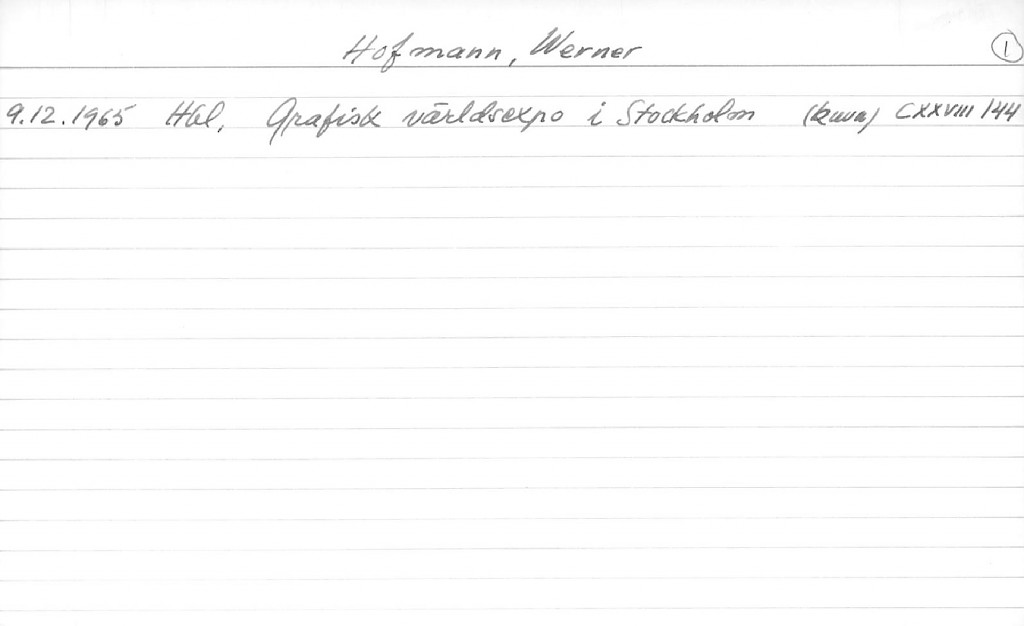 Hofmann, Werner 1
9.12.1965 Hbl, Grafisk världsexpo i Stockholm (kuva) CXXVIII/44